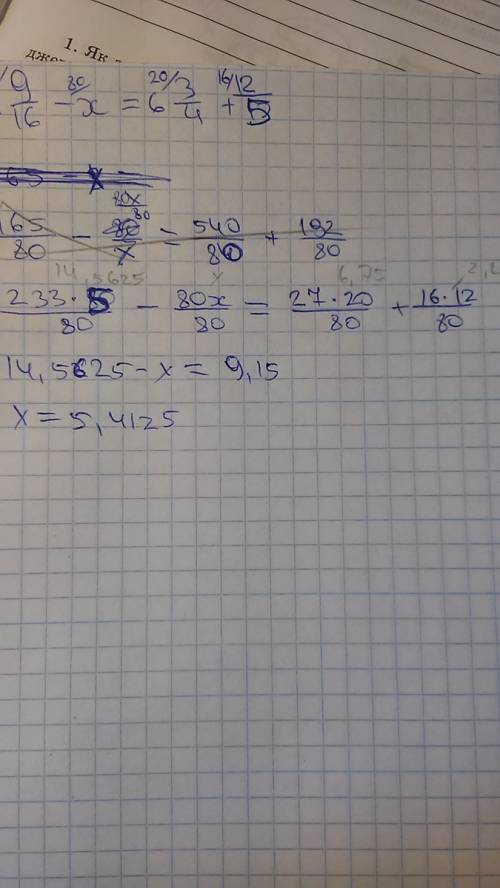 1. Як
9/16 − x = 6 3/4 + 12/5
80 20/ 16/
165/80 − 80x/80 = 540/80 + 192/80
14,5625 x 6,75 2,2
233·5/80 − 80x/80 = 27·20/80 + 16·12/80
14,5625 − x = 9,15
x = 5,4125